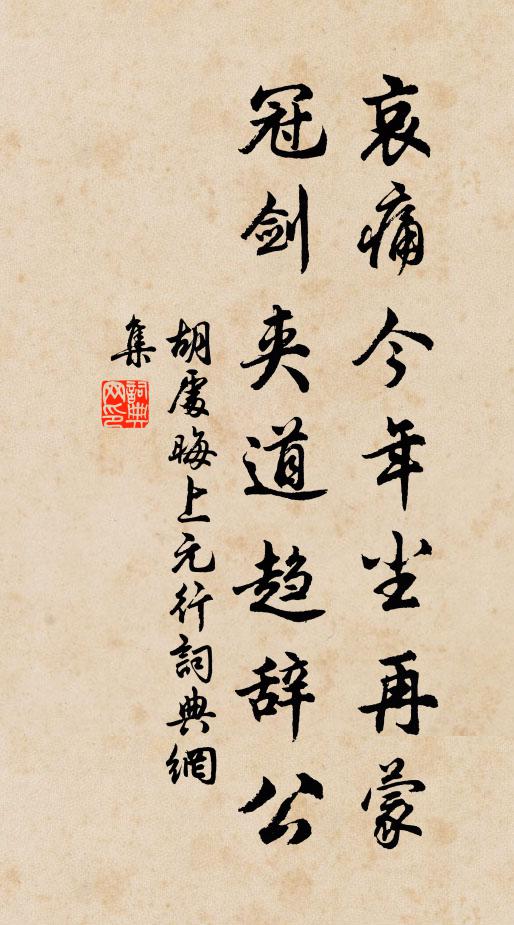 哀痛今年尘再蒙
冠剑夹道趋辞公
胡處晦上元行詞典網
集
詞典
网印